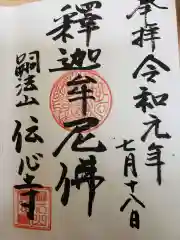 奉拝 令和元年
七月十八日
釋迦牟尼佛
嗣法山 伝心寺